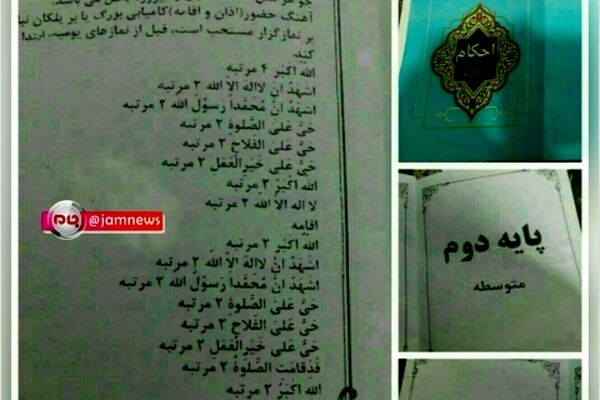 آهنگ حضور(اذان و اقامه)کامیابی بزرگ یا بر پلکان
بر نمازگزار مستحب است، قبل از نمازهای یومیه، ابتدا
کند.
الله اکبر ۴ مرتبه
اشهد ان لااله الا الله ۲ مرتبه
اشهد ان محمدا رسول الله ۲ مرتبه
حی علی الصلوة ۲ مرتبه
حی علی الفلاح ۲ مرتبه
حی علی خیر العمل ۲ مرتبه
الله اکبر ۲ مرتبه
لا اله الا الله ۲ مرتبه
اقامه
الله اکبر ۲ مرتبه
اشهد ان لااله الا الله ۲ مرتبه
اشهد ان محمدا رسول الله ۲ مرتبه
حی علی الصلوة ۲ مرتبه
حی علی الفلاح ۲ مرتبه
حی علی خیر العمل ۲ مرتبه
قدقامت الصلوة ۲ مرتبه
الله اکبر ۲ مرتبه
احکام
پایه دوم
متوسطه
جام @jamnews